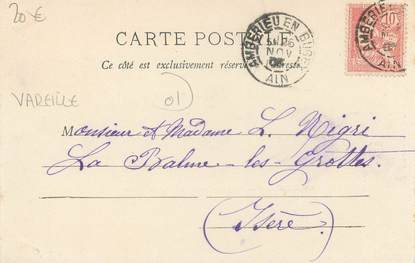 20 €
CARTE POST
Ce côté est exclusivement réservé
AMBERIEU EN BUGEY
NOV
AIN
10
AIN
VAREILLE
01
Monsieur et Madame L. Nigri
La Balme-les-Grottes.
(Isère.)